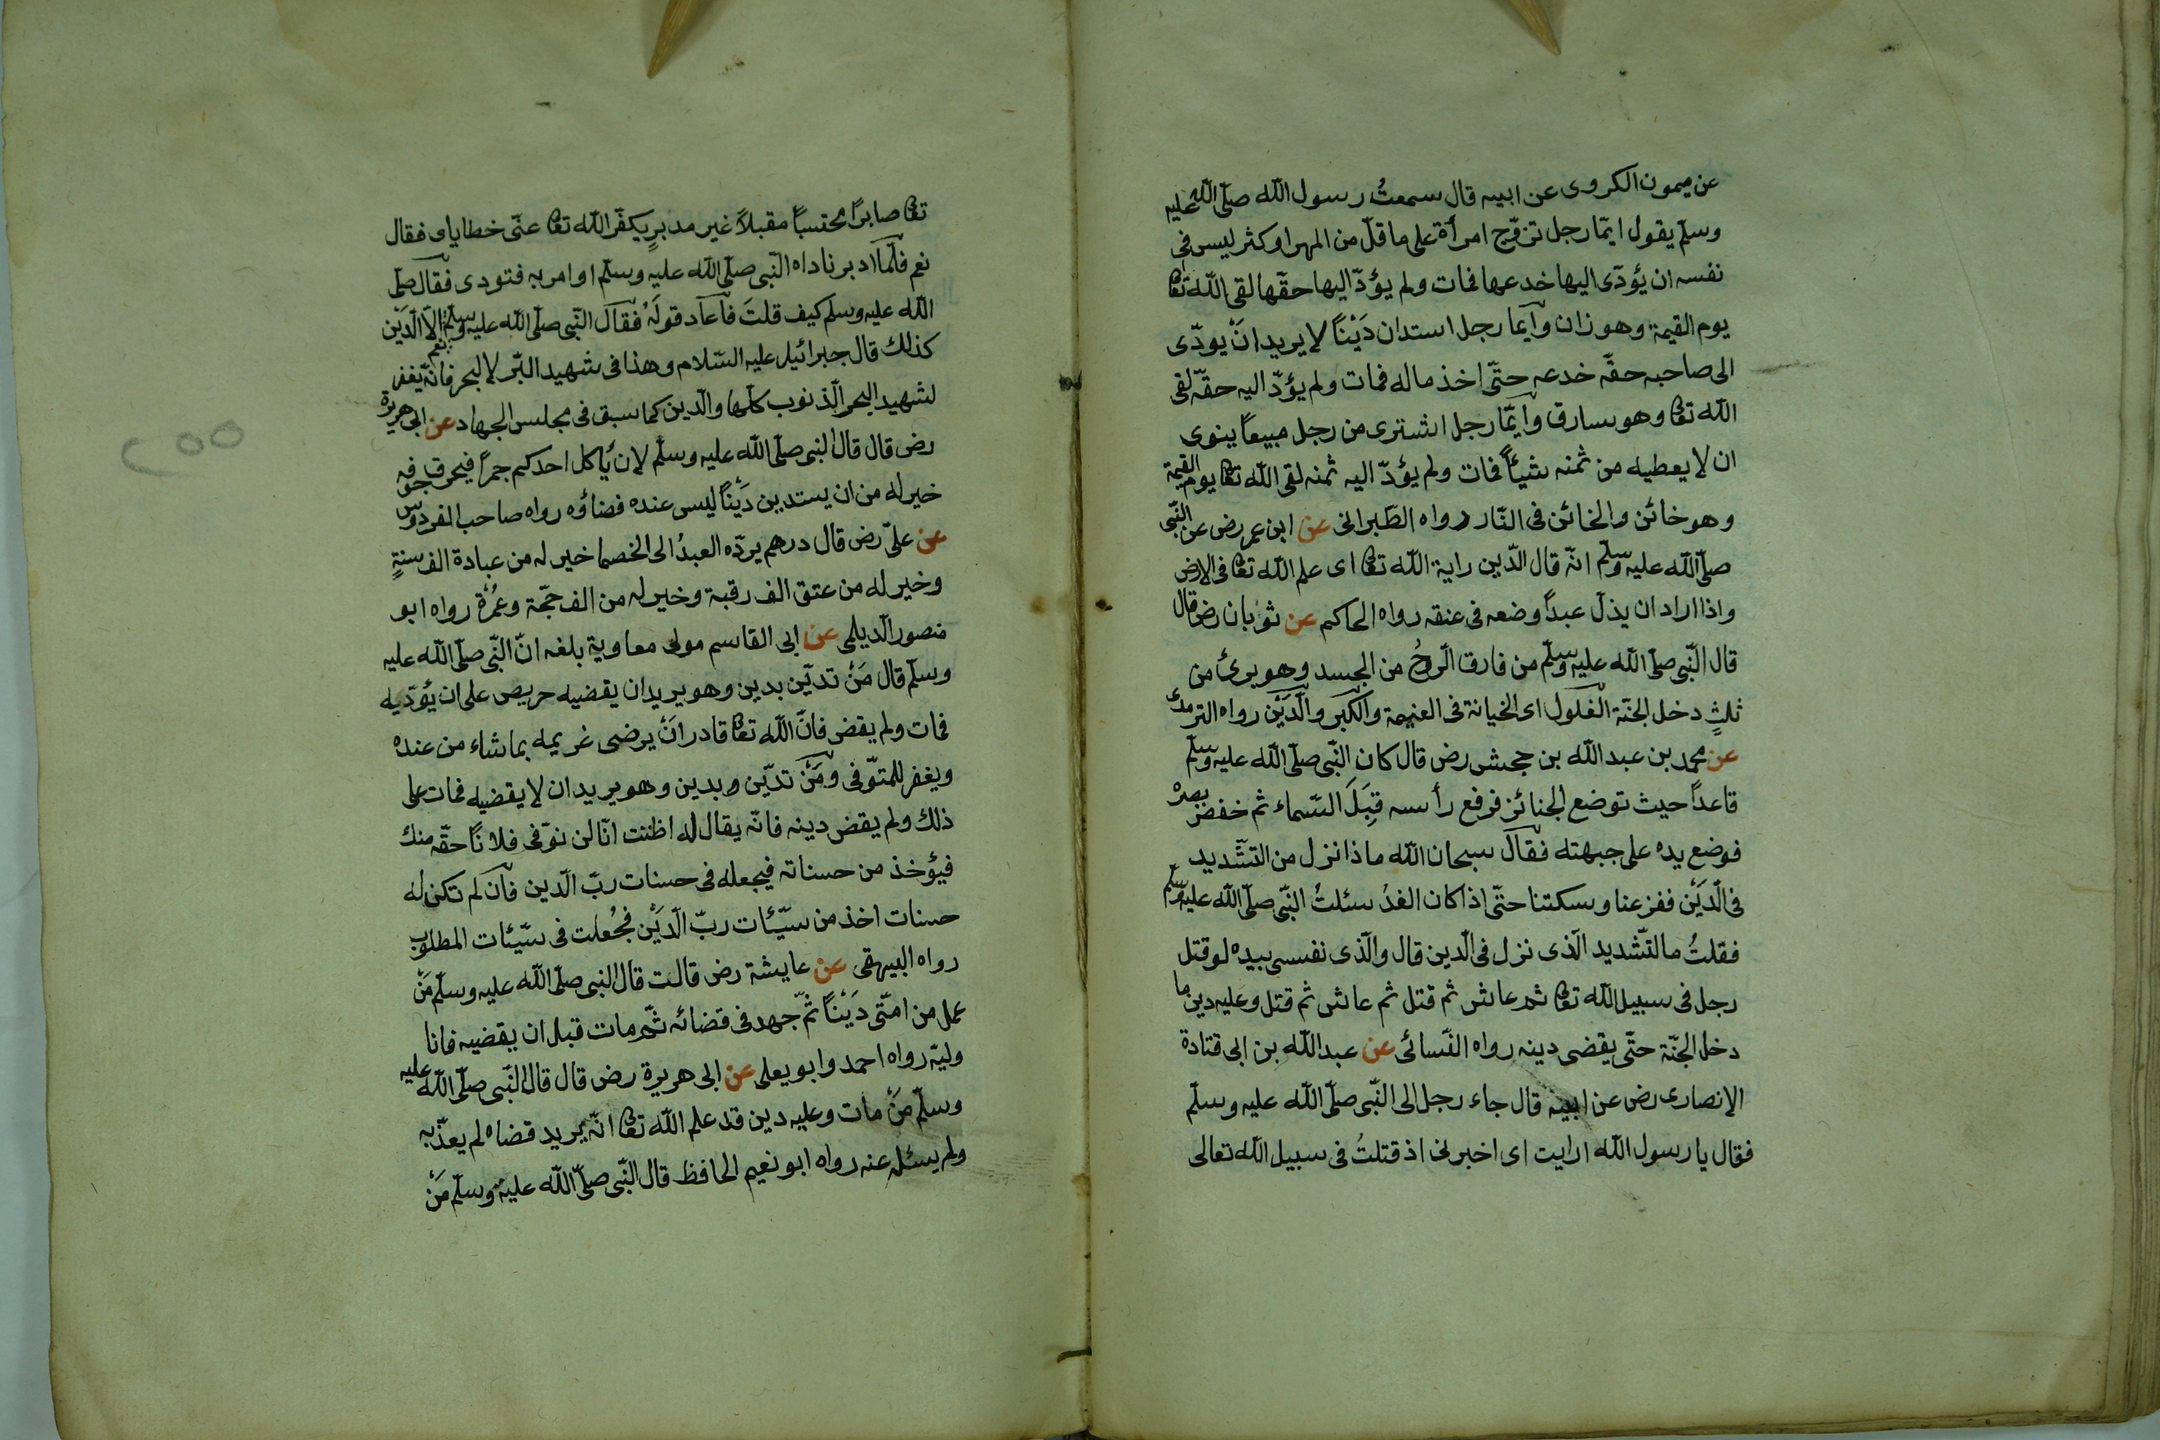 عن ميمون الكروى عن ابيه قال سمعتُ رسول الله صلّى الله عليه
وسلّم يقول ايّما رجل تزوّج امرأة على ما قلّ من المهر او كثر ليس فى
نفسه ان يؤدّى اليها خدعها فمات ولم يؤدّ اليها حقّها لقى الله تعا
يوم القيمة وهو زان وايما رجل استدان دَيْنًا لا يريد انْ يودّى
الى صاحبه حقّه خدعه حتّى اخذ ماله فمات ولم يؤدّ اليه حقّه لقى
الله تعا وهو سارق وايّما رجل اشترى من رجل مبيعاً ينوى
ان لا يعطيه من ثمنه شيئاً فمات ولم يؤدّ اليه ثمنه لقى الله تعا يوم القيمة
وهو خائن والخائن فى النّار رواه الطّبرانى عن ابن عمر رض عن النّبى
صلّى الله عليه وسلّم انّه قال الدّين راية الله تعا اى علم الله تعا فى الارض
واذا اراد ان يذلّ عبداً وضعه فى عنقه رواه الحاكم عن ثوبان رض قال
قال النّبى صلّى الله عليه وسلّم من فارق الرّوحُ من الجسد وهو برئ من
ثلثٍ دخل الجنّة الغلول اى الخيانة فى الغنيمة والكبر والدَّيْن رواه الترمدى
عن محمد بن عبد الله بن جحش رض قال كان النّبى صلّى الله عليه وسلّم
قاعداً حيث توضع الجنائز فرفع رأسه قِبَلَ السّماء ثم خفض بصره
فوضع يده على جبهته فقال سبحان الله ماذا نزل من التشّديد
فى الدَّيْن ففزعنا وسكتنا حتّى اذا كان الغدُ سئلتُ النّبى صلّى الله عليه وسلّم
فقلتُ ما لتّشديد الّذى نزل فى الدّين قال والّذى نفسى بيده لو قتل
رجل فى سبيل الله تعا ثم عاش ثم قتل ثم عاش ثم قتل وعليه دين ما
دخل الجنّة حتّى يقضى دينه رواه النّسائى عن عبد الله بن ابى قتادة
الانصارى رض عن ابيه قال جاء رجل الى النّبى صلّى الله عليه وسلّم
فقال يا رسول الله ارايت اى اخبرنى اذ قتلتُ فى سبيل الله تعالى
تعا صابراً محتسباً مقبلاً غير مدبرٍ يكفّر الله تعا عنّى خطاياى فقال
نعم فلمّا ادبر ناداه النّبى صلّى الله عليه وسلّم او امر به فنودى فقال صلّى
الله عليه وسلّم كيف قلتَ فاعاد قولَهُ فقال النّبى صلّى الله عليه وسلّم نعم الّا الدَّيْن
كذلك قال جبرائيل عليه السّلام وهذا فى شهيد البّر لا البحر فانّه يغفر
لشهيد البحر الّذنوب كلّها والّدين كما سبق فى مجلس الجهاد عن ابى هريرة
رض قال قال النبى صلّى الله عليه وسلّم لان يأكل احدكم جمراً فيحرق جوفه
خير له من ان يستدين دَيْناً ليس عنده قضاؤه رواه صاحب الفردوس
عن علىّ رض قال درهم يردّه العبدُ الى الخصما خير له من عبادة الف سنةٍ
وخير له من عتق الف رقبة وخير له من الف حجّة وعُمْرة رواه ابو
منصور الّديلمى عن ابى القاسم مولى معاوية بلغه انّ النّبى صلّى الله عليه
وسلّم قال مَنْ تديّن بدين وهو يريد ان يقضيه حريص على ان يؤدّيه
فمات ولم يقض فانّ الله تعا قادر انْ يرضى غريمه بما شاء من عنده
ويغفر للمتوّفى ومَنْ تديّن بدين وهو يريد ان لا يقضيه فمات على
ذلك ولم يقض دينه فانّه يقال له اظننت انّا لن نوّفى فلاناً حقّه منك
فيؤخذ من حسناته فيجعله فى حسنات ربّ الّدين فان لم تكن له
حسنات اخذ من سيّئات ربّ الّدَيْن فجُعلت فى سيّئات المطلوب
رواه البيهقى عن عايشة رض قالت قال النبى صلّى الله عليه وسلّم مَنْ
عمل من امتّى دَيْناً ثمّ جهد فى قضائه ثمّ مات قبل ان يقضيه فانا
وليّه رواه احمد وابو يعلى عن ابى هريرة رض قال قال النّبى صلّى الله عليه
وسلّم مَنْ مات وعليه دين قد علم الله تعا انّه يريد قضاه لم يعذّبه
ولم يسئله عنه رواه ابو نعيم الحافظ قال النّبى صلّى الله عليه وسلّم مَنْ